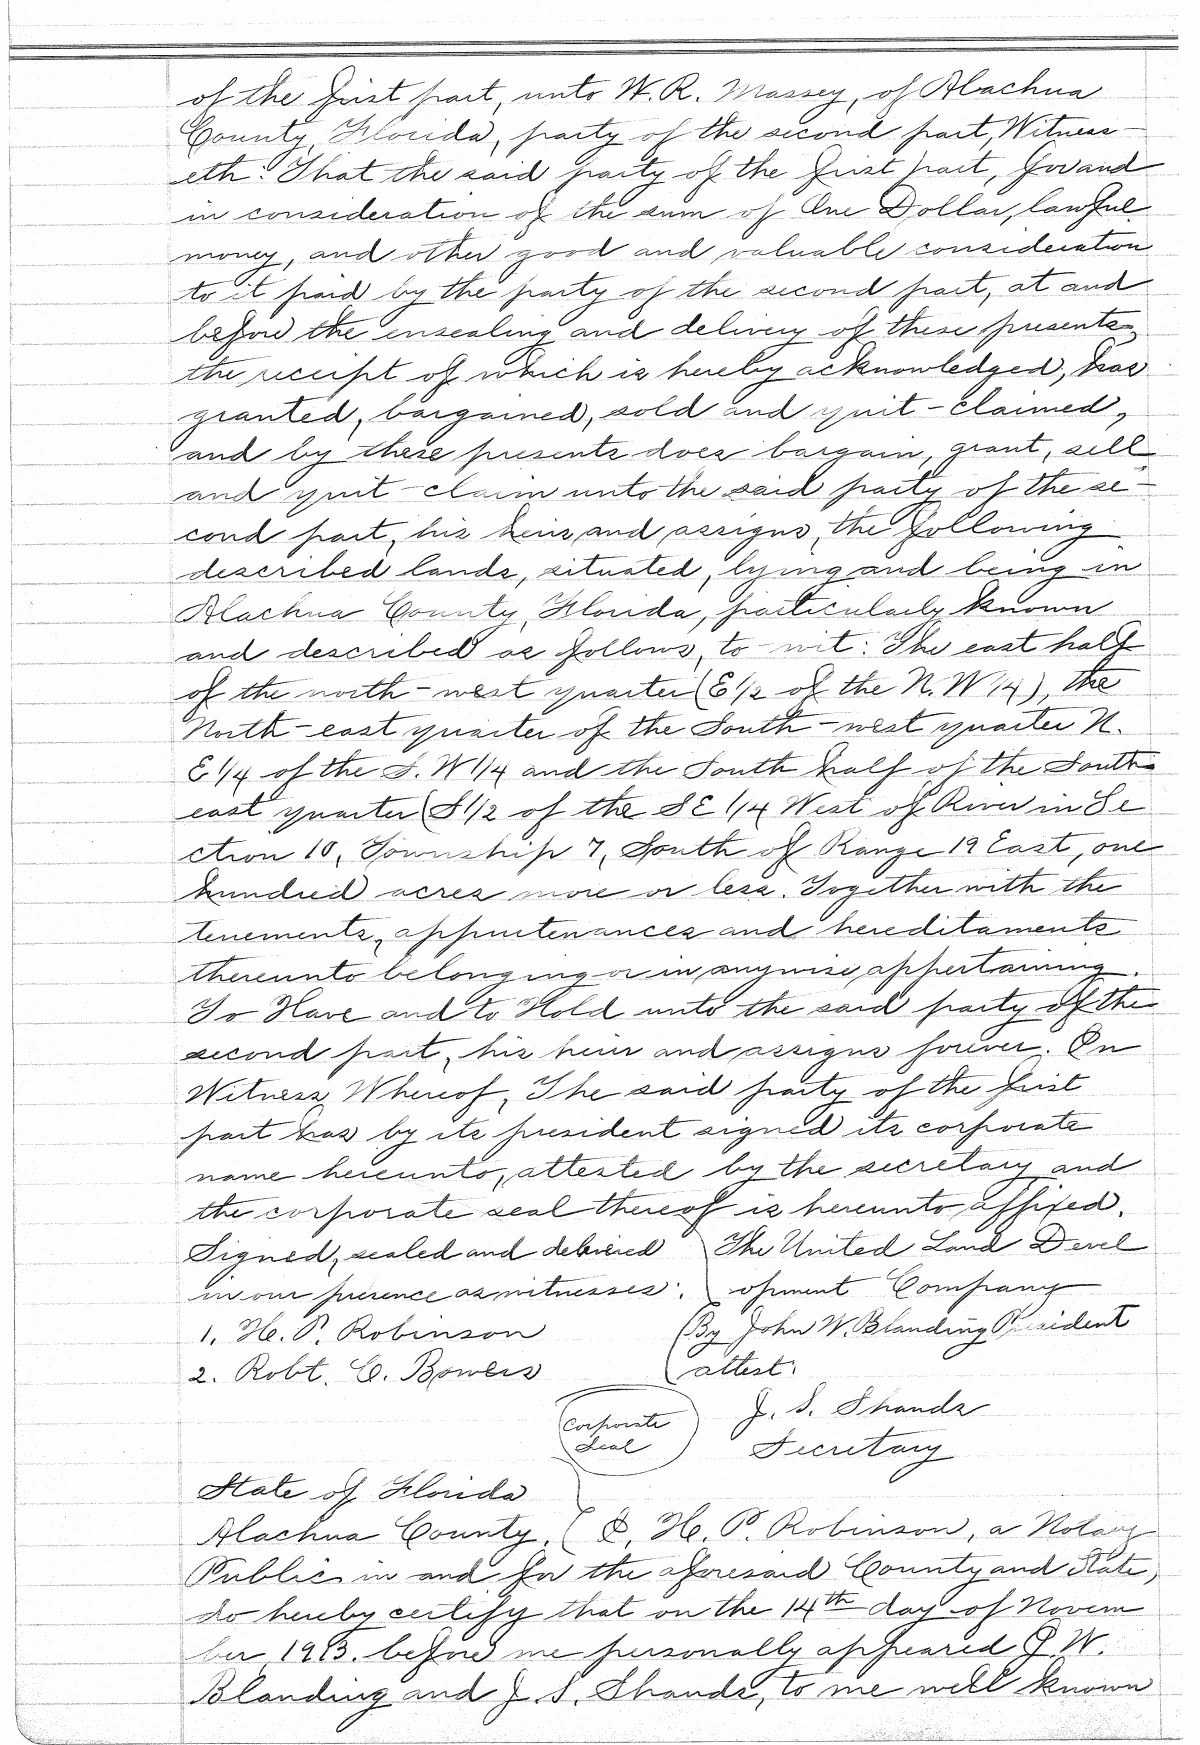 of the first part, unto W. R. Massey, of Alachua
County, Florida, party of the second part, Witness-
eth: That the said party of the first part, for and
in consideration of the sum of One Dollar, lawful
money, and other good and valuable consideration
to it paid by the party of the second part, at and
before the ensealing and delivery of these presents,
the receipt of which is hereby acknowledged, has
granted, bargained, sold and quit-claimed,
and by these presents does bargain, grant, sell
and quit-claim unto the said party of the se-
cond part, his heirs and assigns, the following
described lands, situated, lying and being in
Alachua County, Florida, particularly known
and described as follows, to-wit: The east half
of the north-west quarter (E 1/2 of the N.W 1/4), the
North-east quarter of the South-west quarter N.
E 1/4 of the S. W 1/4 and the South half of the South
east quarter (S 1/2 of the SE 1/4 West of River in Se
ction 10, Township 7, South of Range 19 East, one
hundred acres more or less. Together with the
tenements, appurtenances and hereditaments
thereunto belonging or in anywise appertaining.
To Have and to Hold unto the said party of the
second part, his heirs and assigns forever. In
Witness Whereof, The said party of the first
part has by its president signed its corporate
name hereunto, attested by the secretary and
the corporate seal thereof is hereunto affixed.
Signed, sealed and delivered The United Land Devel
in our presence as witnesses: opment Company
1. H. P. Robinson (By John W. Blanding President
2. Robt. C. Bowers attest:
Corporate J. S. Shands
Seal Secretary
State of Florida
Alachua County. ( I, H. P. Robinson, a Notary
Public in and for the aforesaid County and State,
do hereby certify that on the 14th day of Novem
ber 1913. before me personally appeared J W.
Blanding and J. S. Shands, to me well known